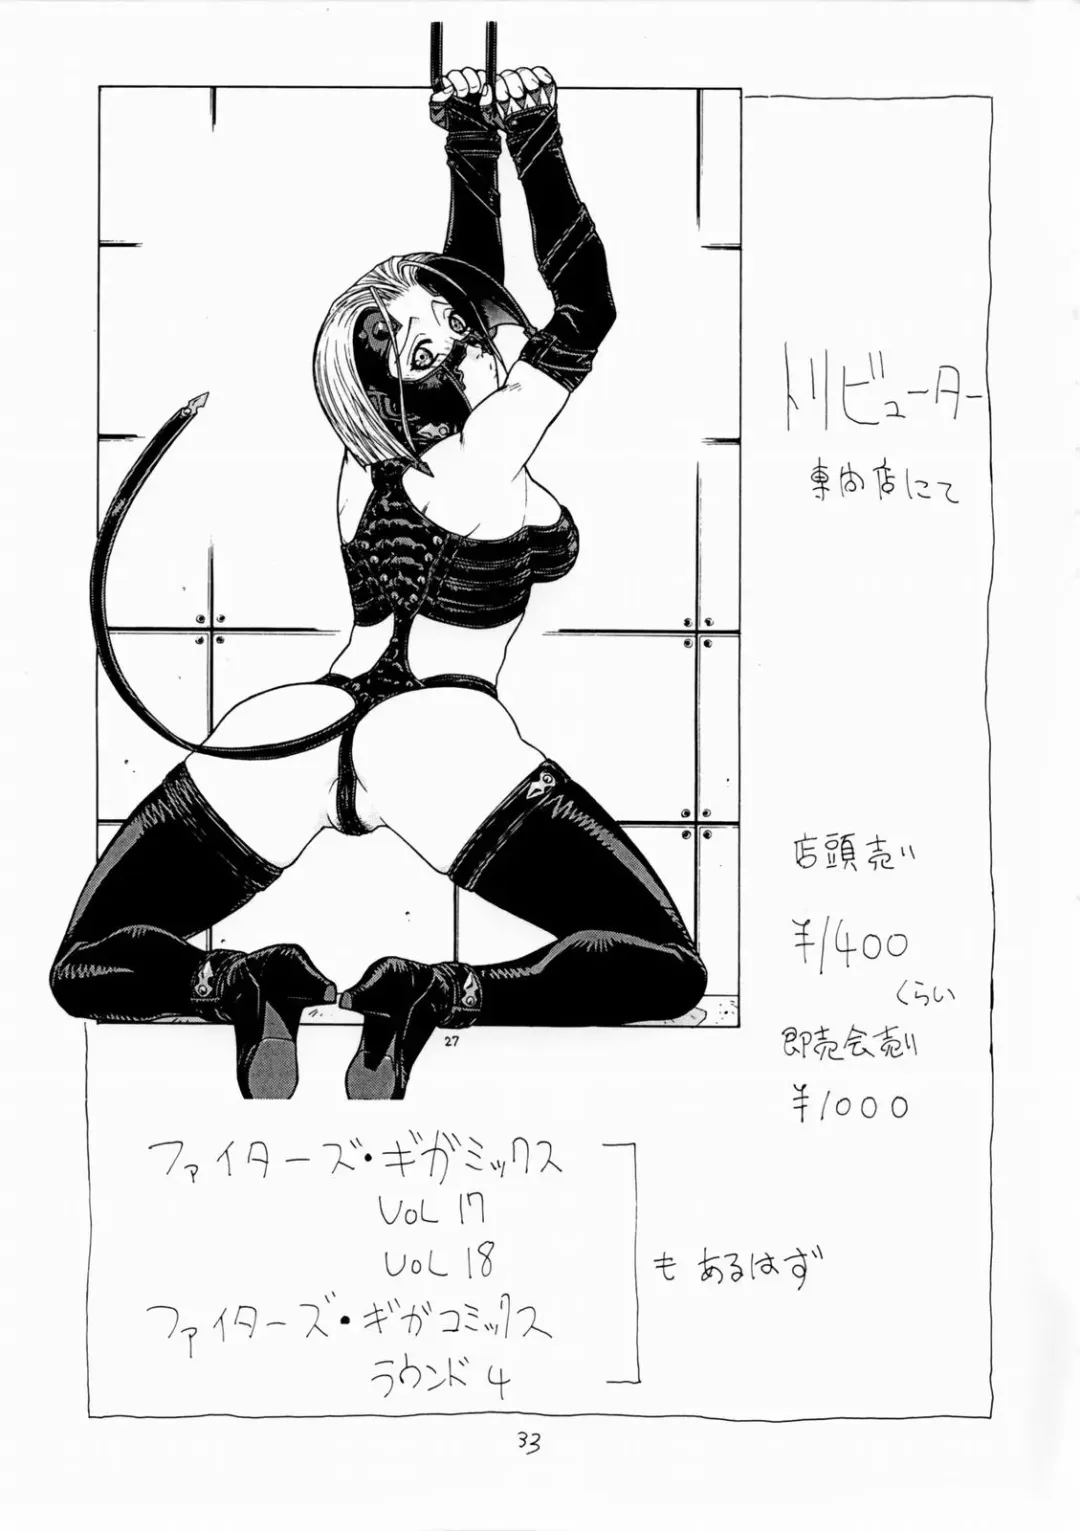 トリビューター
専門店にて
店頭売り
¥1400
くらい
即売会売り
¥1000
27
ファイターズ・ギガミックス
VOL 17
VOL 18
ファイターズ・ギガコミックス
ラウンド 4
も あるはず
33